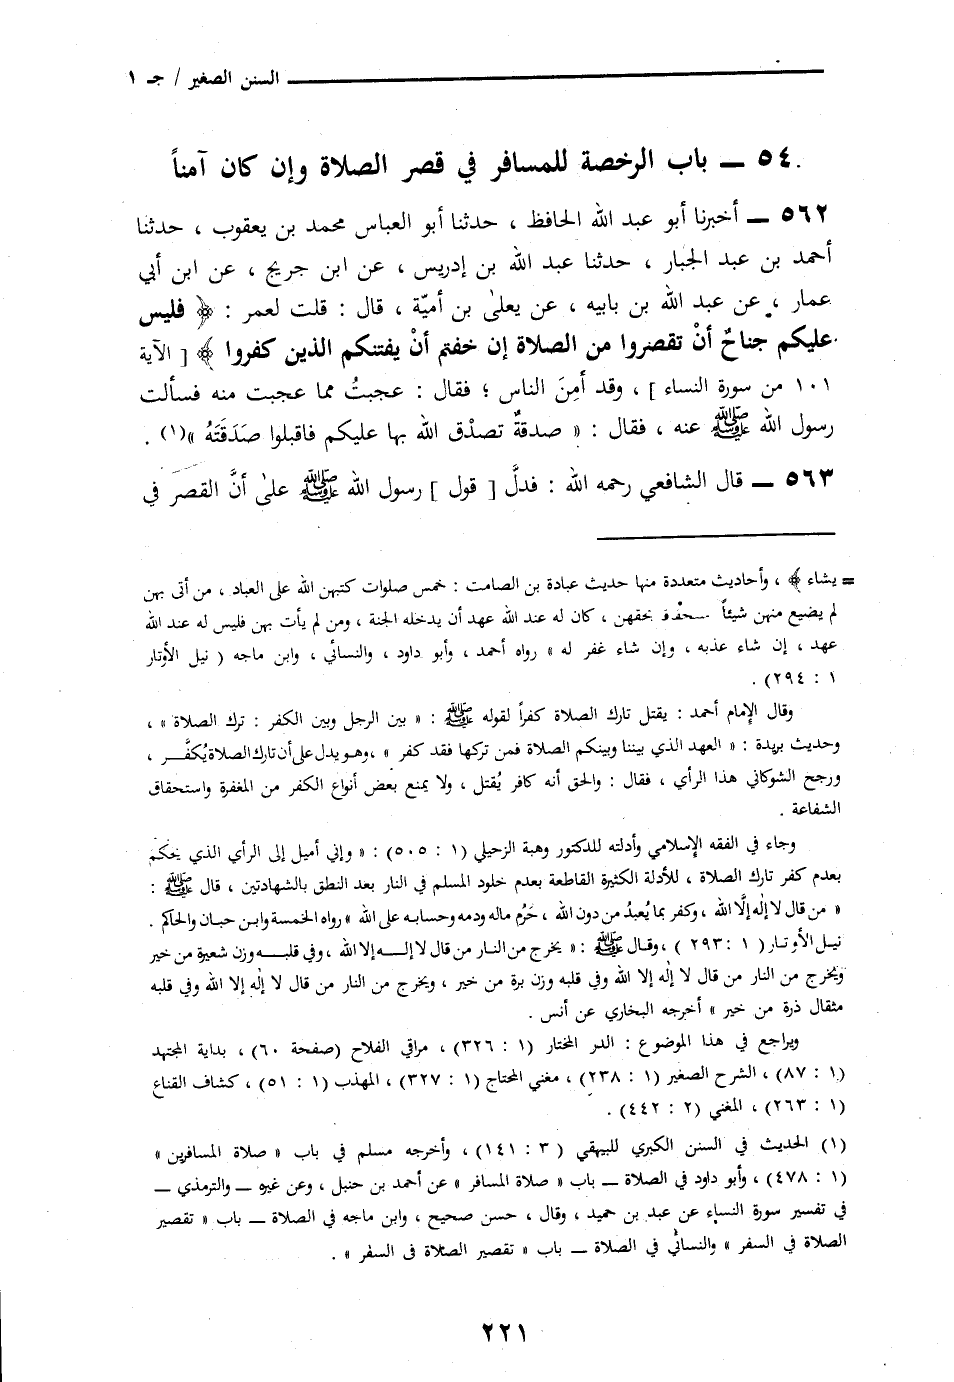 السنن الصغير / جـ ١
٥٤ ــ باب الرخصة للمسافر في قصر الصلاة وإن كان آمناً
٥٦٢ ــ أخبرنا أبو عبد الله الحافظ ، حدثنا أبو العباس محمد بن يعقوب ، حدثنا
أحمد بن عبد الجبار ، حدثنا عبد الله بن إدريس ، عن ابن جريج ، عن ابن أبي
عمار ، عن عبد الله بن بابيه ، عن يعلىٰ بن أميّة ، قال : قلت لعمر : ﴿ فليس
عليكم جناحٌ أنْ تقصروا من الصلاة إن خفتم أنْ يفتنكم الذين كفروا ﴾ [ الآية
١٠١ من سورة النساء ] ، وقد أمِنَ الناس ؛ فقال : عجبتُ مما عجبت منه فسألت
رسول الله ﷺ عنه ، فقال : « صدقةٌ تصدْق الله بها عليكم فاقبلوا صَدَقَتَهُ »(١) .
٥٦٣ ــ قال الشافعي رحمه الله : فدلَّ [ قول ] رسول الله ﷺ علىٰ أنَّ القصرَ في
= يشاء ﴾ ، وأحاديث متعددة منها حديث عبادة بن الصامت : خمس صلوات كتبهن الله على العباد ، من أتى بهن
لم يضيع منهن شيئاً بحقهن ، كان له عند الله عهد أن يدخله الجنة ، ومن لم يأت بهن فليس له عند الله
عهد ، إن شاء عذبه ، وإن شاء غفر له » رواه أحمد ، وأبو داود ، والنسائي ، وابن ماجه ( نيل الأوتار
١ : ٢٩٤) .
وقال الإمام أحمد : يقتل تارك الصلاة كفراً لقوله ﷺ : « بين الرجل وبين الكفر : ترك الصلاة » ،
وحديث بريدة : « العهد الذي بيننا وبينكم الصلاة فمن تركها فقد كفر » ، وهو يدل على أن تارك الصلاة يُكفَّر ،
ورجح الشوكاني هذا الرأي ، فقال : والحق أنه كافر يُقتل ، ولا يمنع بعض أنواع الكفر من المغفرة واستحقاق
الشفاعة .
وجاء في الفقه الإسلامي وأدلته للدكتور وهبة الزحيلي (١ : ٥٠٥) : « وإني أميل إلى الرأي الذي يحكم
بعدم كفر تارك الصلاة ، للأدلة الكثيرة القاطعة بعدم خلود المسلم في النار بعد النطق بالشهادتين ، قال ﷺ :
« من قال لا إله إلَّا الله ، وكفر بما يُعبدُ من دون الله ، حَرُم ماله ودمه وحسابه على الله » رواه الخمسة وابن حبان والحاكم .
نيل الأوتار ( ١ : ٢٩٣ ) ، وقال ﷺ : « يخرج من النار من قال لا إله إلا الله ، وفي قلبه وزن شعيرة من خير
ويخرج من النار من قال لا إله إلا الله وفي قلبه وزن برة من خير ، ويخرج من النار من قال لا إله إلا الله وفي قلبه
مثقال ذرة من خير » أخرجه البخاري عن أنس .
ويراجع في هذا الموضوع : الدر المختار (١ : ٣٢٦) ، مراقي الفلاح (صفحة ٦٠) ، بداية المجتهد
(١ : ٨٧) ، الشرح الصغير (١ : ٢٣٨) ، مغني المحتاج (١ : ٣٢٧) ، المهذب (١ : ٥١) ، كشاف القناع
(١ : ٢٦٣) ، المغني (٢ : ٤٤٢) .
(١) الحديث في السنن الكبري للبيهقي (٣ : ١٤١) ، وأخرجه مسلم في باب « صلاة المسافرين »
(١ : ٤٧٨) ، وأبو داود في الصلاة ــ باب « صلاة المسافر » عن أحمد بن حنبل ، وعن غيره ــ والترمذي ــ
في تفسير سورة النساء عن عبد بن حميد ، وقال ، حسن صحيح ، وابن ماجه في الصلاة ــ باب « تقصير
الصلاة في السفر » والنسائي في الصلاة ــ باب « تقصير الصلاة فى السفر » .
٢٢١